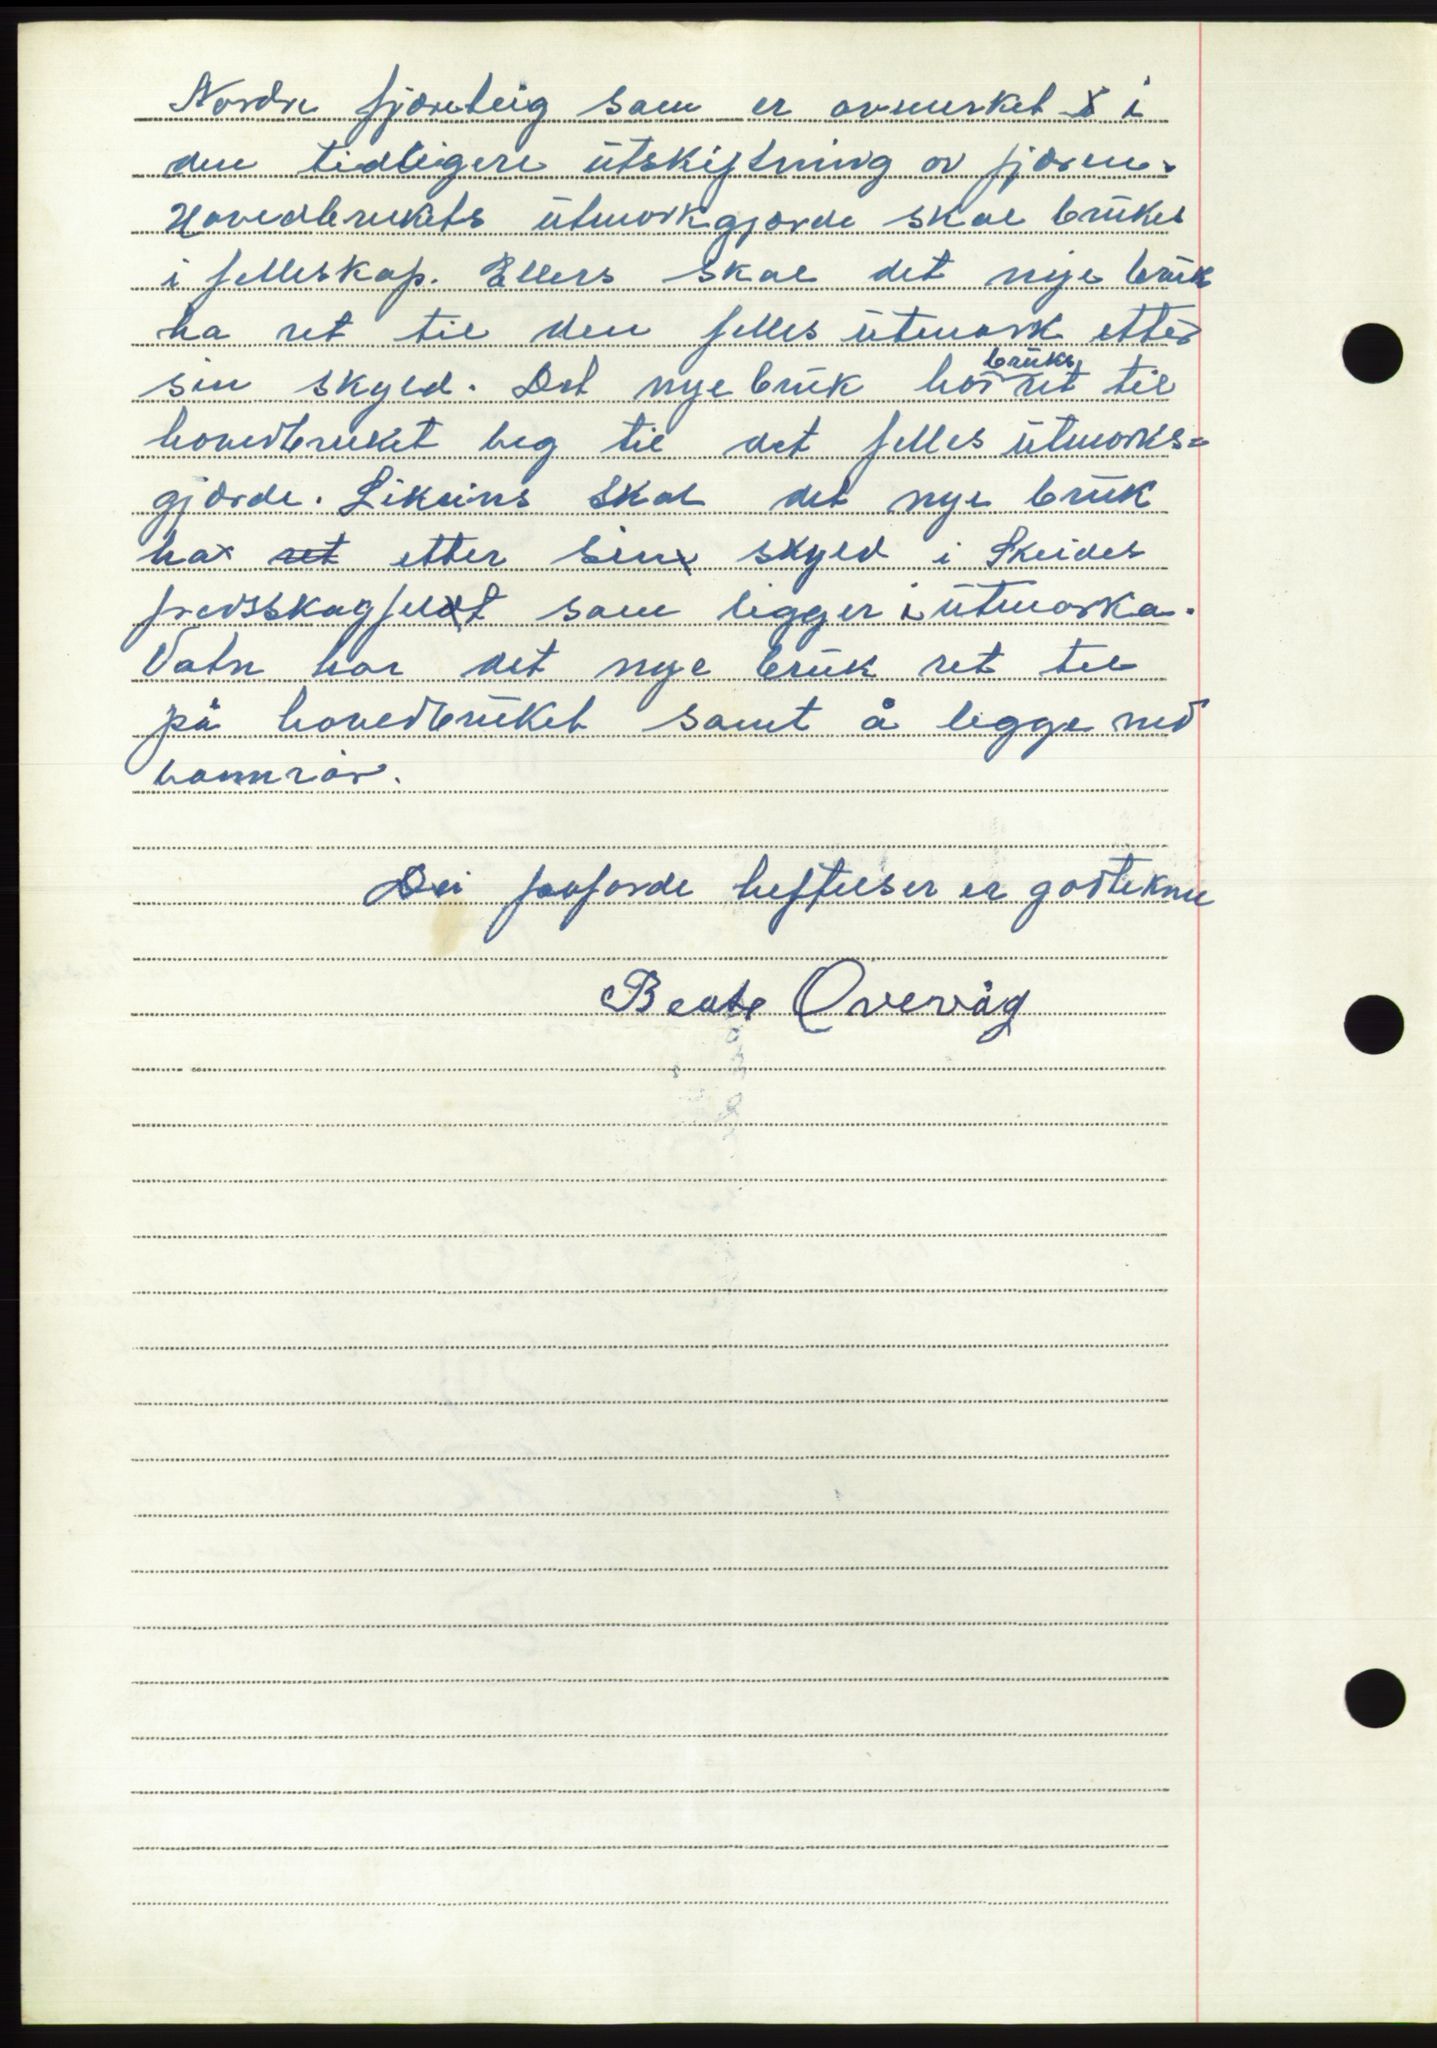 Nordre fjøreteig som er avmerket i
den tidligere utskiftning av fjøren.
Hovedbrukets utmorkgjorde skal brukes
i felleskap. Ellers skal det nye bruk
ha ret til den felles utmork etter
sin skyld. Det nye bruk har bruks ret til
hovedbruket veg til det felles utmorks=
gjorde. Likeins skal det nye bruk
ha ret etter sin skyld i Skeides
fredsskogfelt som ligger i utmorka.
Vatn har det nye bruk ret til
på hovedbruket samt å legge ned
vannrør.
Dei forførde heftelser er godtekne
Beate Overvåg